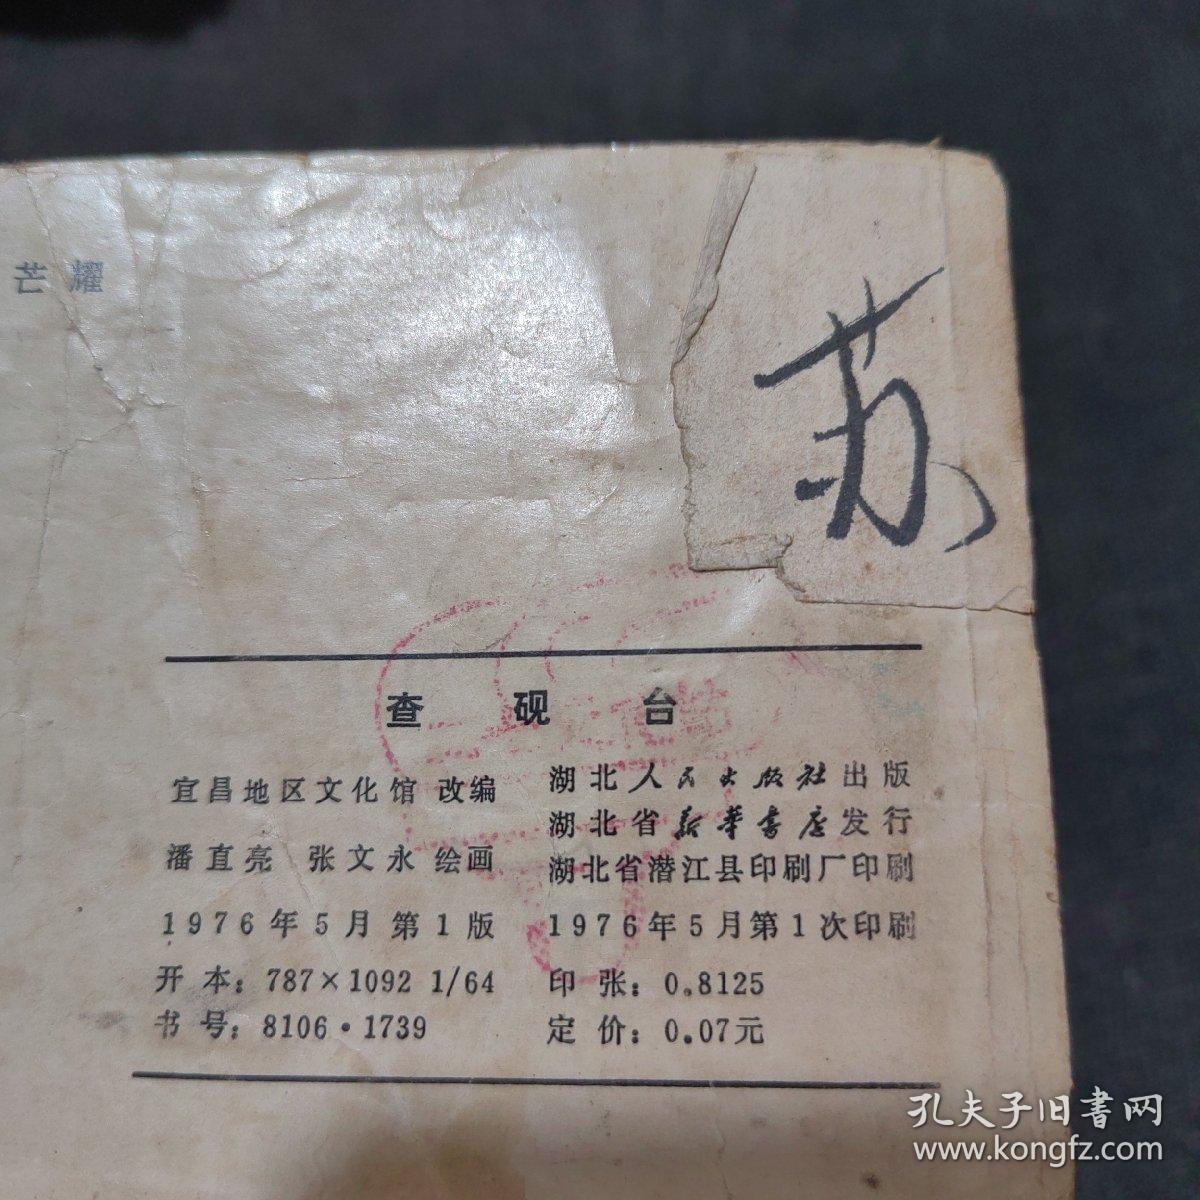 芒耀
苏
查砚台
宜昌地区文化馆 改编
潘直亮 张文永 绘画
1976年5月第1版
开本：787×1092 1/64
书号：8106·1739
湖北人民出版社出版
湖北省新华书店发行
湖北省潜江县印刷厂印刷
1976年5月第1次印刷
印张：0.8125
定价：0.07元
孔夫子旧书网
www.kongfz.com